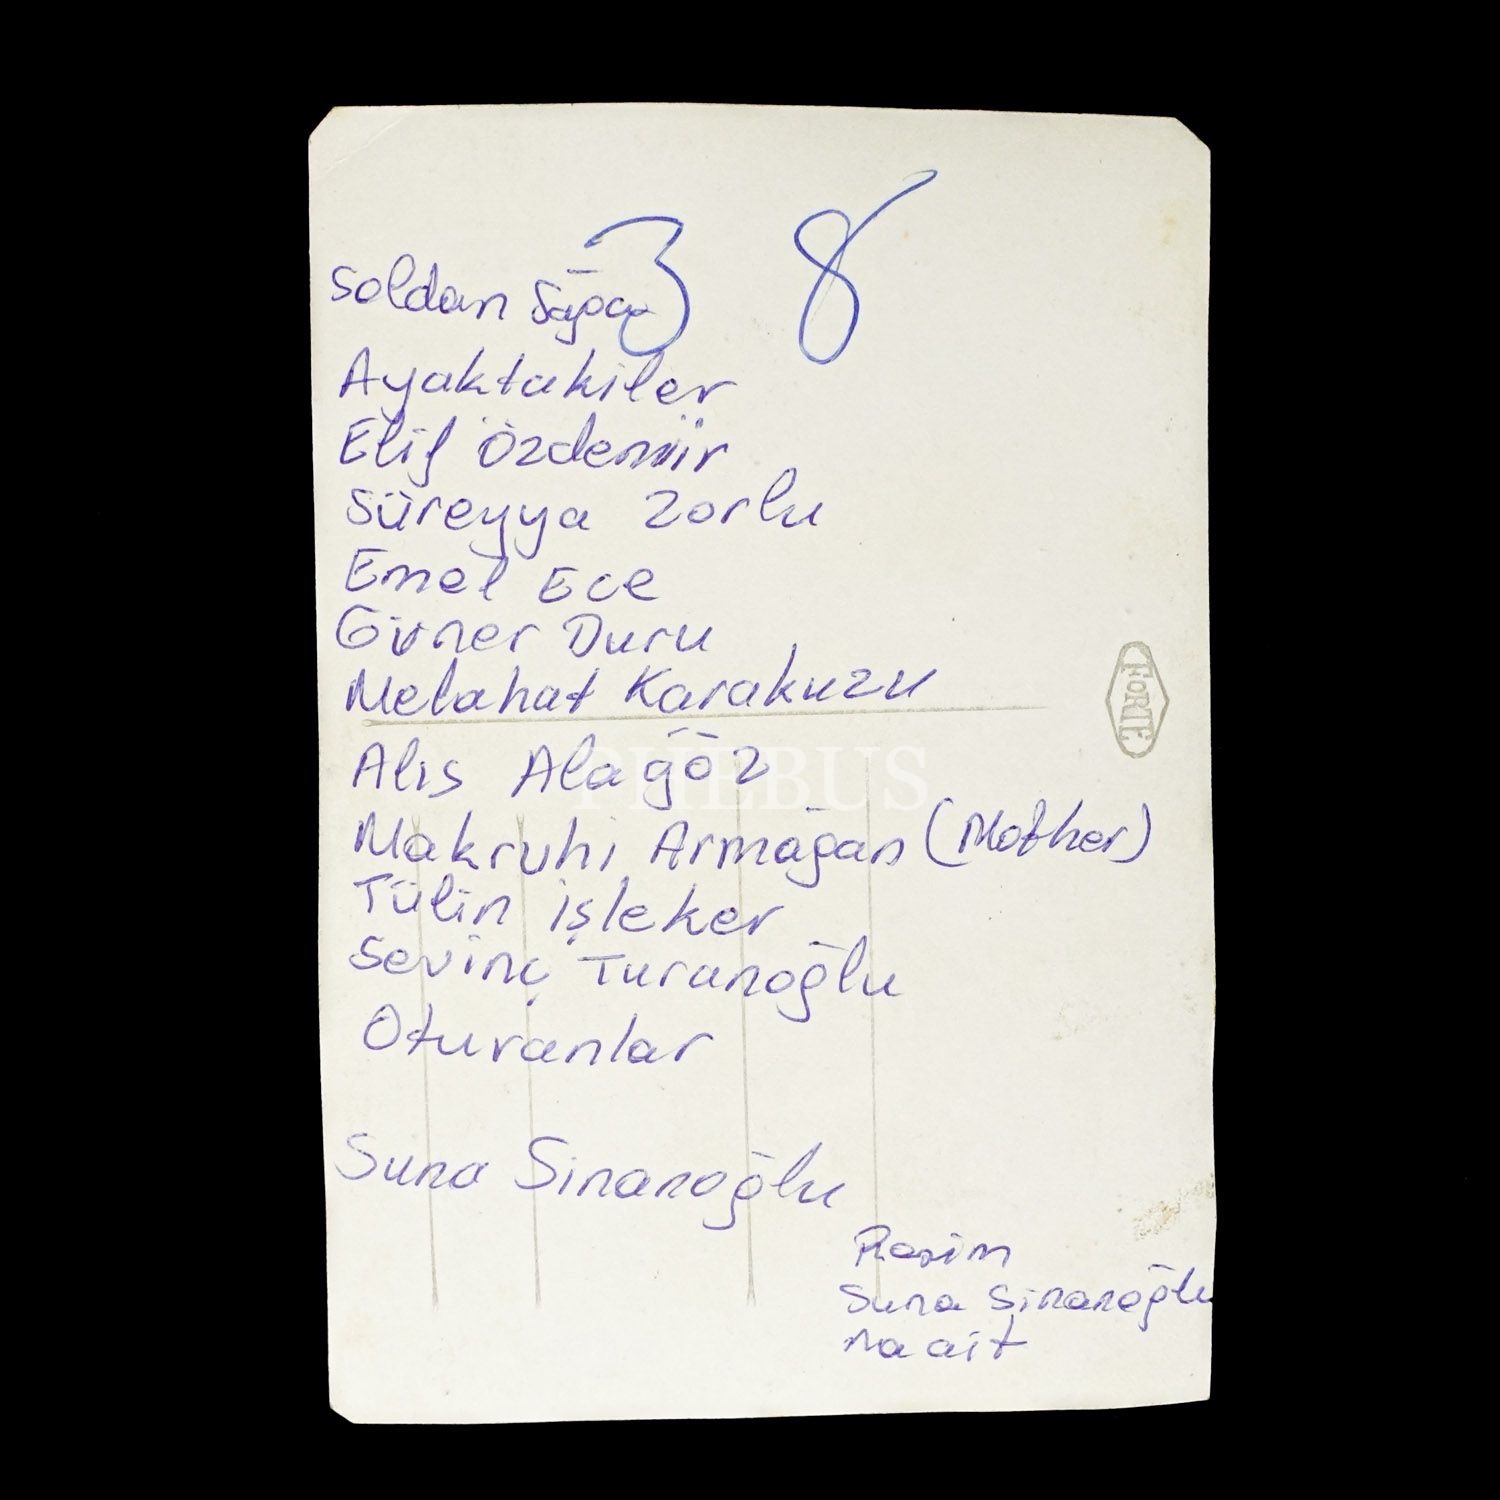 3 8
Soldan Sağa
Ayaktakiler
Elif Özdemir
Süreyya Zorlu
Emel Ece
Güner Duru
Melahat Karakuzu
FORTE
Alis Alagöz
PHEBUS
Makruhi Armağan (Mother)
Tülin işleker
Sevinç Turanoğlu
Oturanlar
Suna Sinanoğlu
Resim
Suna Sinanoğlu
na ait